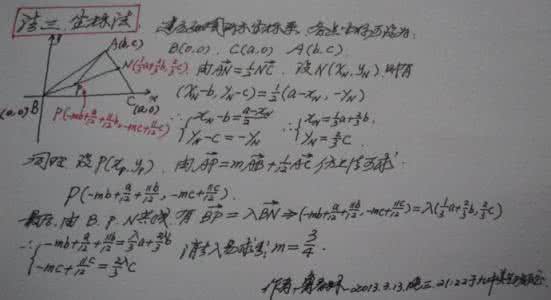 法三、坐标法
建立如图所示坐标系,各点坐标可设为
B(0,0), C(a,0) A(b,c)
y
A(b,c)
N(⅓a+⅔b, ⅔c)
P
B
(0,0)
C
(a,0)
x
P(-mb+a/12+11b/12, -mc+11c/12)
由AN=½NC, 设N(x_N, y_N),则有
(x_N-b, y_N-c)=½(a-x_N, -y_N)
∴{x_N-b=(a-x_N)/2 ∴{x_N=⅓a+⅔b,
y_N-c=-y_N y_N=⅔c.
同理 设P(x_p, y_p), 由AP=mAB+1/12AC 仿上法可求
P(-mb+a/12+11b/12, -mc+11c/12).
最后,由B、P、N共线,有BP=λBN⇒(-mb+a/12+11b/12, -mc+11c/12)=λ(⅓a+⅔b, ⅔c)
∴{-mb+a/12+11b/12=λ/3a+2λ/3b
-mc+11c/12=2/3λc
消去λ易求出m=3/4.
作者: 2013.3.13.晚 21:22于